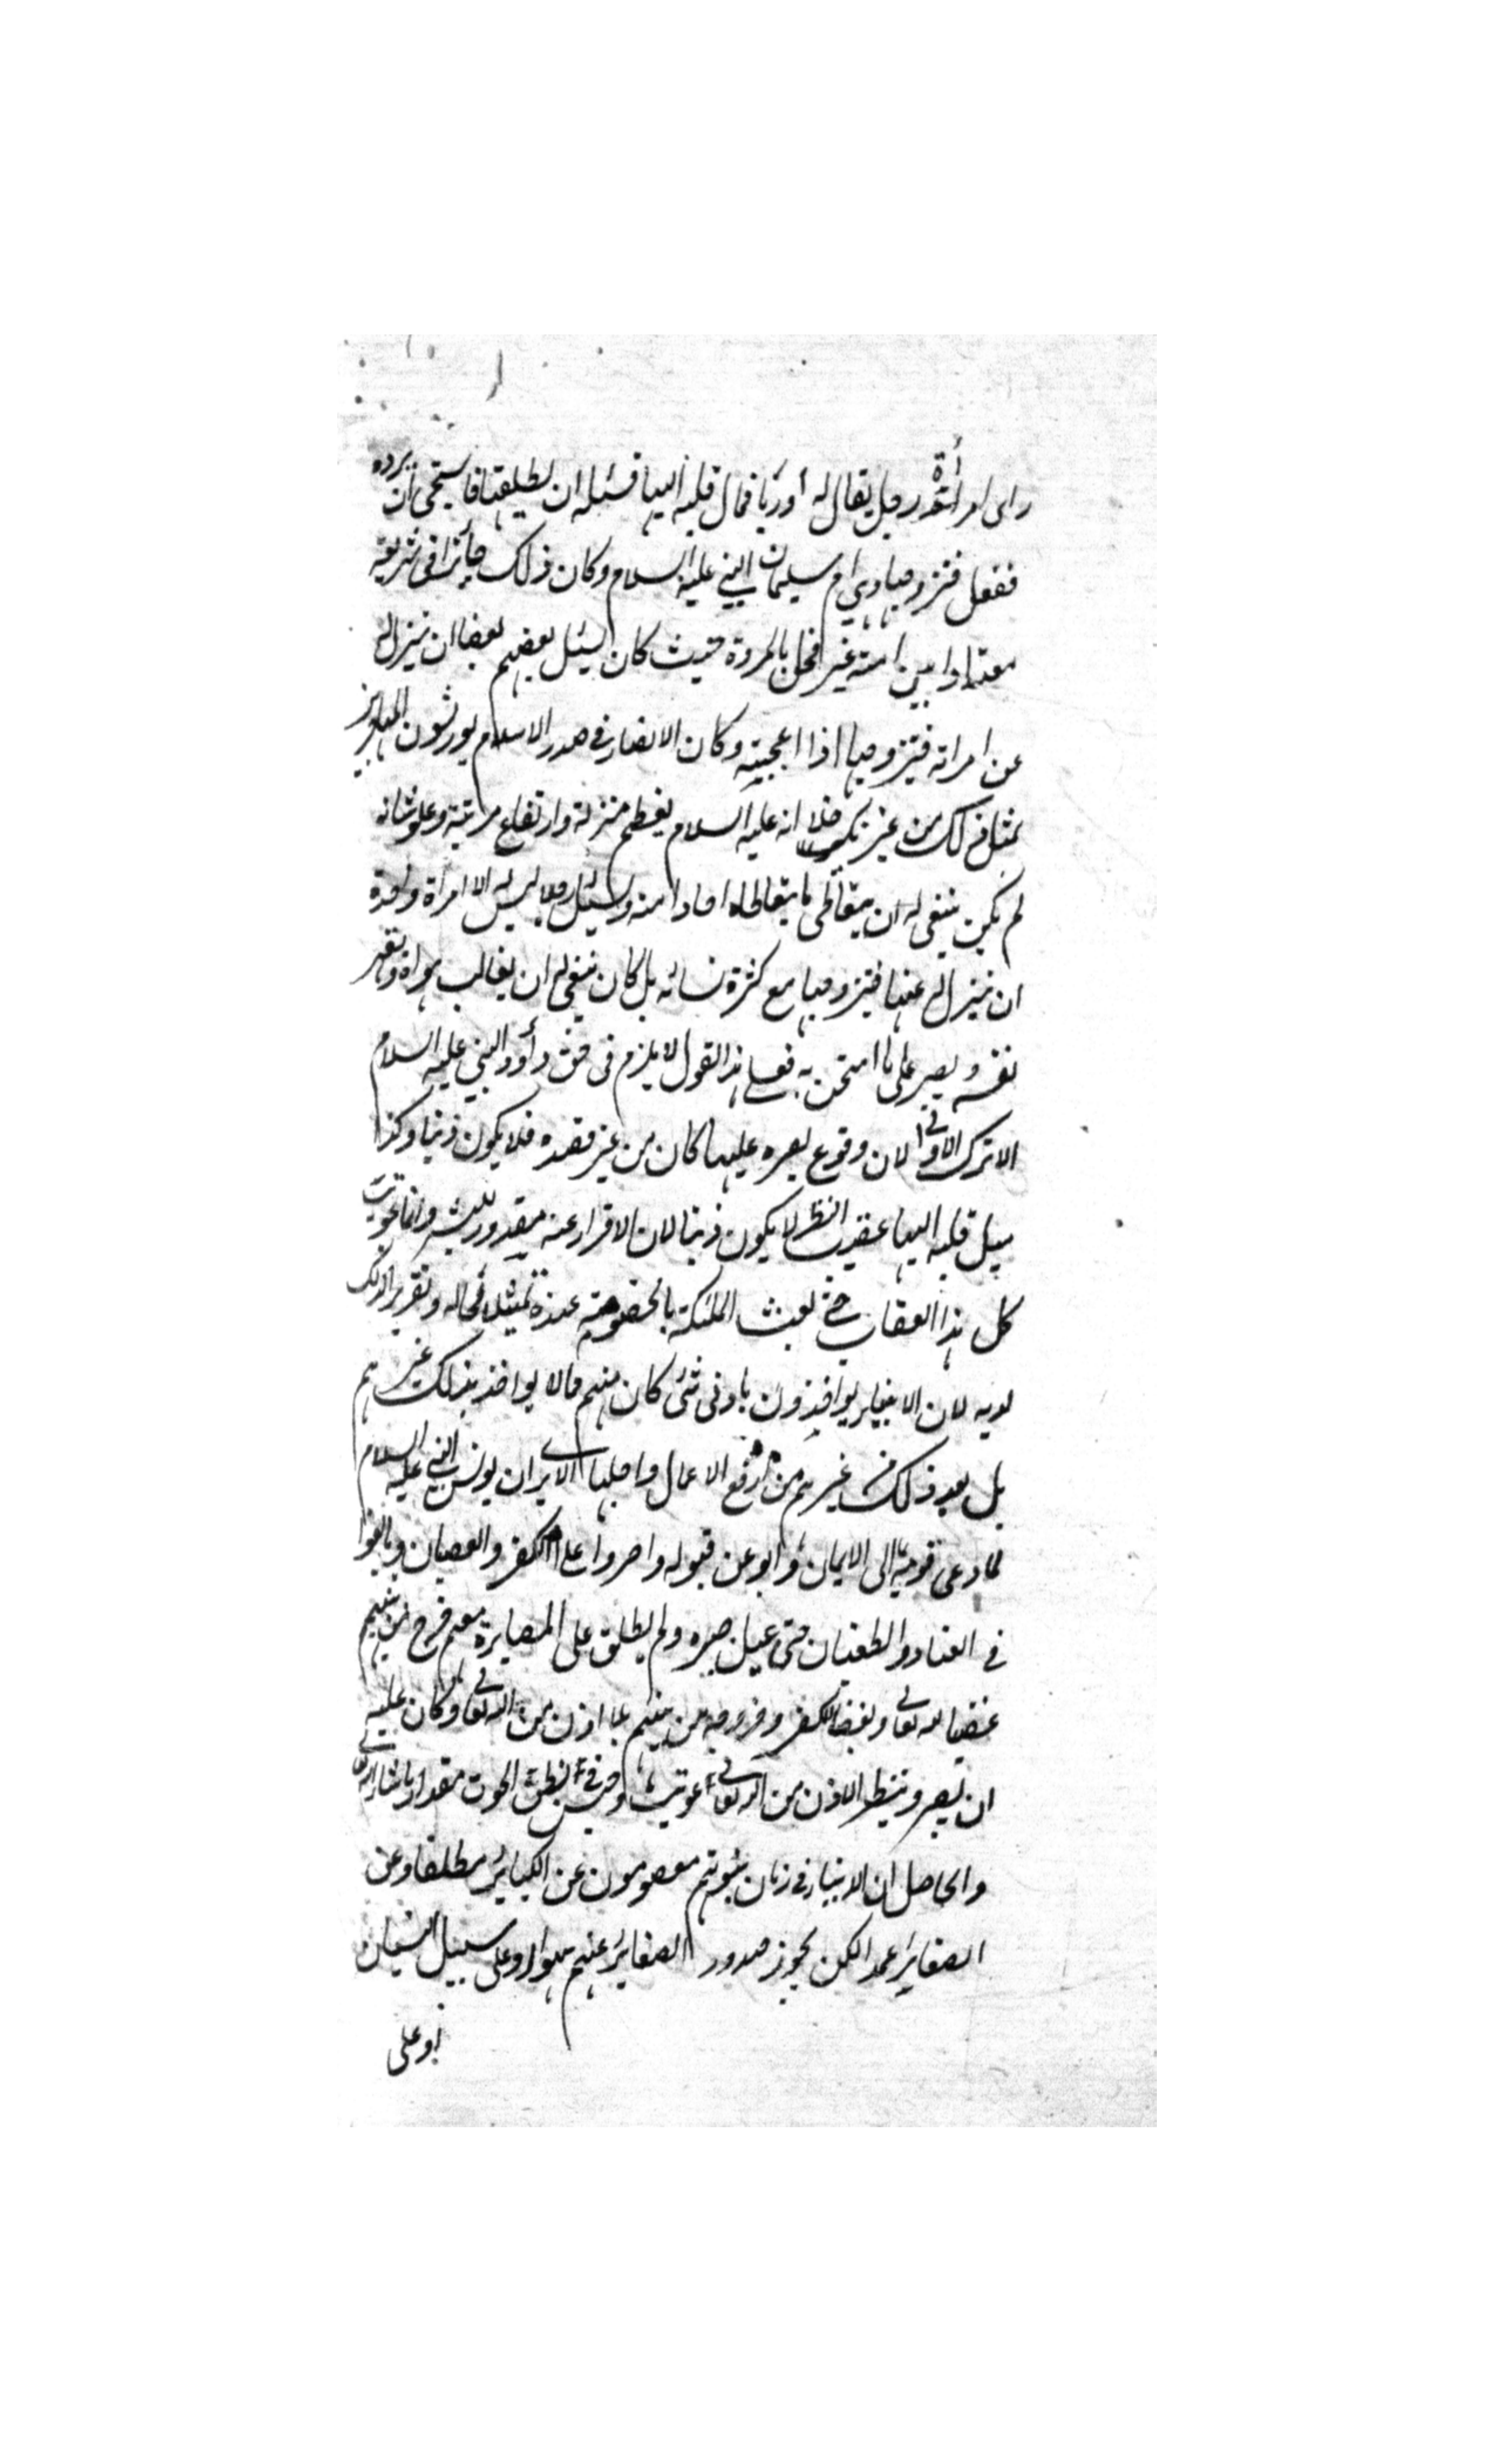 راى امرأة رجل يقال له أوريا فمال قلبه اليها فسئله ان يطلقها فاستحيى ان يرده
ففعل فتزوجها وهي ام سليمان النبي عليه السلام وكان ذلك جائزا في شريعته
معتادا بين امته غير مخل بالمروة حيث كان يسئل بعضهم بعضا ان ينزل له
عن امراته فيتزوجها اذا اعجبته وكان الانصار في صدر الاسلام يورثون المهاجرين
بمثل ذلك من غير نكير خلا انه عليه السلام لعظم منزلته وارتفاع مرتبته وعلو شانه
لم يكن ينبغي له ان يتعاطى ما يتعاطاه احاد امته ويسئل رجلا ليس له الا امرأة واحدة
ان ينزل له عنها فيتزوجها مع كثرة نسائه بل كان ينبغي له ان يغالب هواه ويقهر
نفسه ويصبر على ما امتحن به فعلى هذا القول لا يلزم في حق دأود النبي عليه السلام
الا ترك الاولى لان وقوع بصره عليها كان من غير قصده فلا يكون ذنبا وكذا
ميل قلبه اليها عقيب النظر لا يكون ذنبا لان الاقرار عنه مقدور للبشر وانما عوتب
كل هذا العقاب حتى بعث الملئكة بالخصومة عنده تمثيلا لحاله وتقريرا لذلك
لديه لان الانبياء يواخذون بادنى شئ كان منهم مالا يواخذ بذلك غيرهم
بل يعد ذلك من غيرهم من ارفع الاعمال واجلها الا يرى ان يونس النبي عليه السلام
لما دعى قومه الى الايمان وابو عن قبوله واصروا على الكفر والعصيان وبالغوا
في العناد والطغيان حتى عيل صبره ولم يطق على المصابرة معهم فخرج من بينهم
غضبا لله تعالى وبغضا للكفر وخروجه من بينهم بلا اذن من الله تعالى وكان عليه
ان يصبر وينتظر الاذن من الله تعالى عوتب وحبس في بطن الحوت مقدار ما شاء الله تعالى
والحاصل ان الانبياء في زمان نبوتهم معصومون عن الكبائر مطلقا وعن
الصغائر عمدا لكن يجوز صدور الصغائر عنهم سهوا وعلى سبيل النسيان
او على